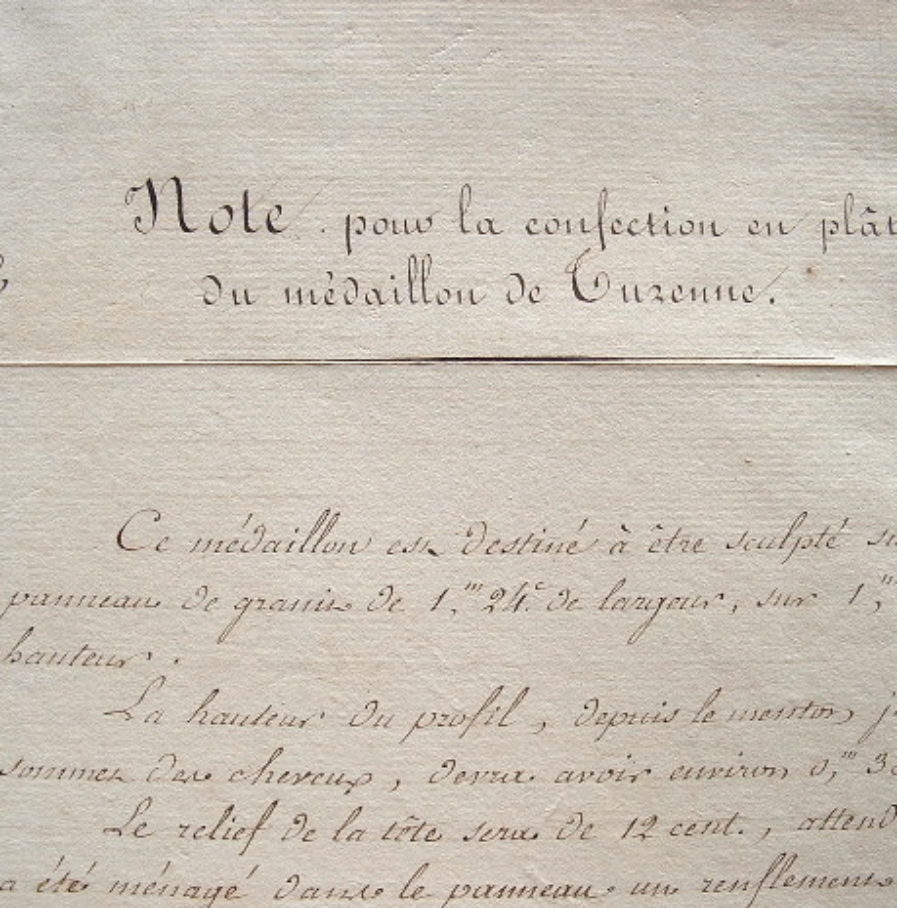 Note pour la confection en plât
du médaillon de Turenne.
Ce médaillon est destiné à être sculpté su
panneau de granit de 1,m 24c. de largeur, sur 1,m
hauteur.
La hauteur du profil, depuis le menton j
sommet des cheveux, devra avoir environ 0,m 3
Le relief de la tête sera de 12 cent., attend
a été ménagé dans le panneau un renflement